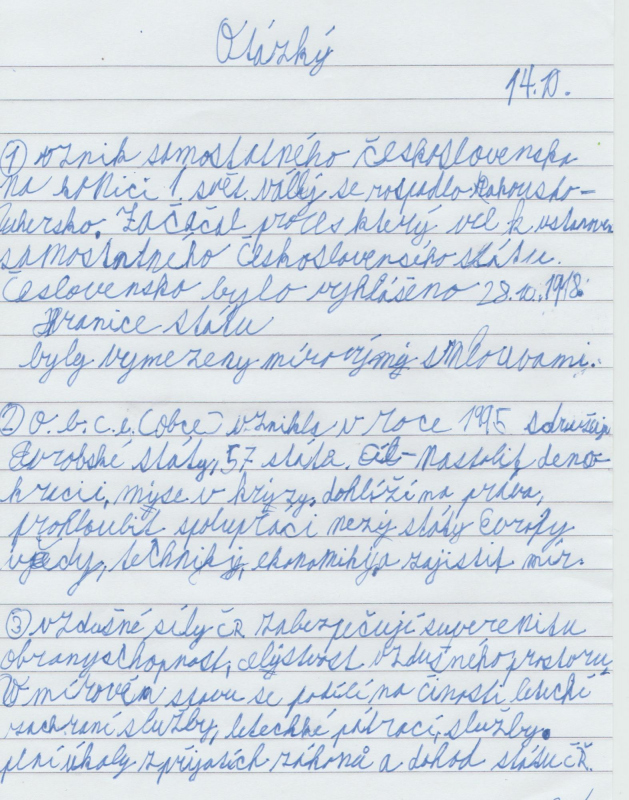 Otázký
14.10.
① vznik samostatného Československa
na konici 1. svět. války se rospadlo Rakousko-
uhersko. Začačal proces který vel k ustanov
samostntného Československého státu.
Česlovensko bylo vyhlášeno 28.10.1918.
Hranice státu
byly vymezeny mírovýmy smlouvami.
② O.b.c.e. (obce) vznikla v roce 1995 sdružuje
Evrobské státy, 57 státa. Cíl- Nastolit demo-
krecii, myse v krýzy, dohlíží na práva,
prohloubit spolupráci nezý státy Evropy
vjedy, techniky, ekonomiky, a zajistit mír.
③ vzdušné síly ČR zabezpečují suverenitu
obranyschopnost, celýstvost vzdušného prostoru,
V mírovém stavu se podílí na činosti letecké
zachraní služby, letechké pátrací, služby.
plní úkoly z přijatich zákonů a dohod státu ČR.